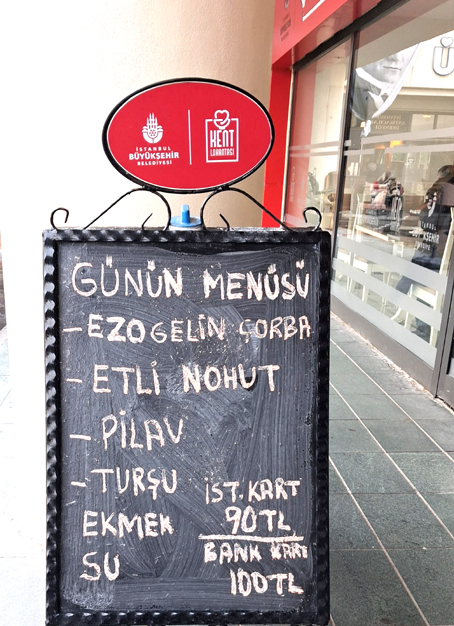 İSTANBUL
BÜYÜKŞEHİR
BELEDİYESİ
KENT
LOKANTASI
GÜNÜN MENÜSÜ
-EZOGELİN ÇORBA
-ETLİ NOHUT
-PİLAV
-TURŞU
EKMEK
SU
İST.KART
90TL
BANK KARTI
100TL